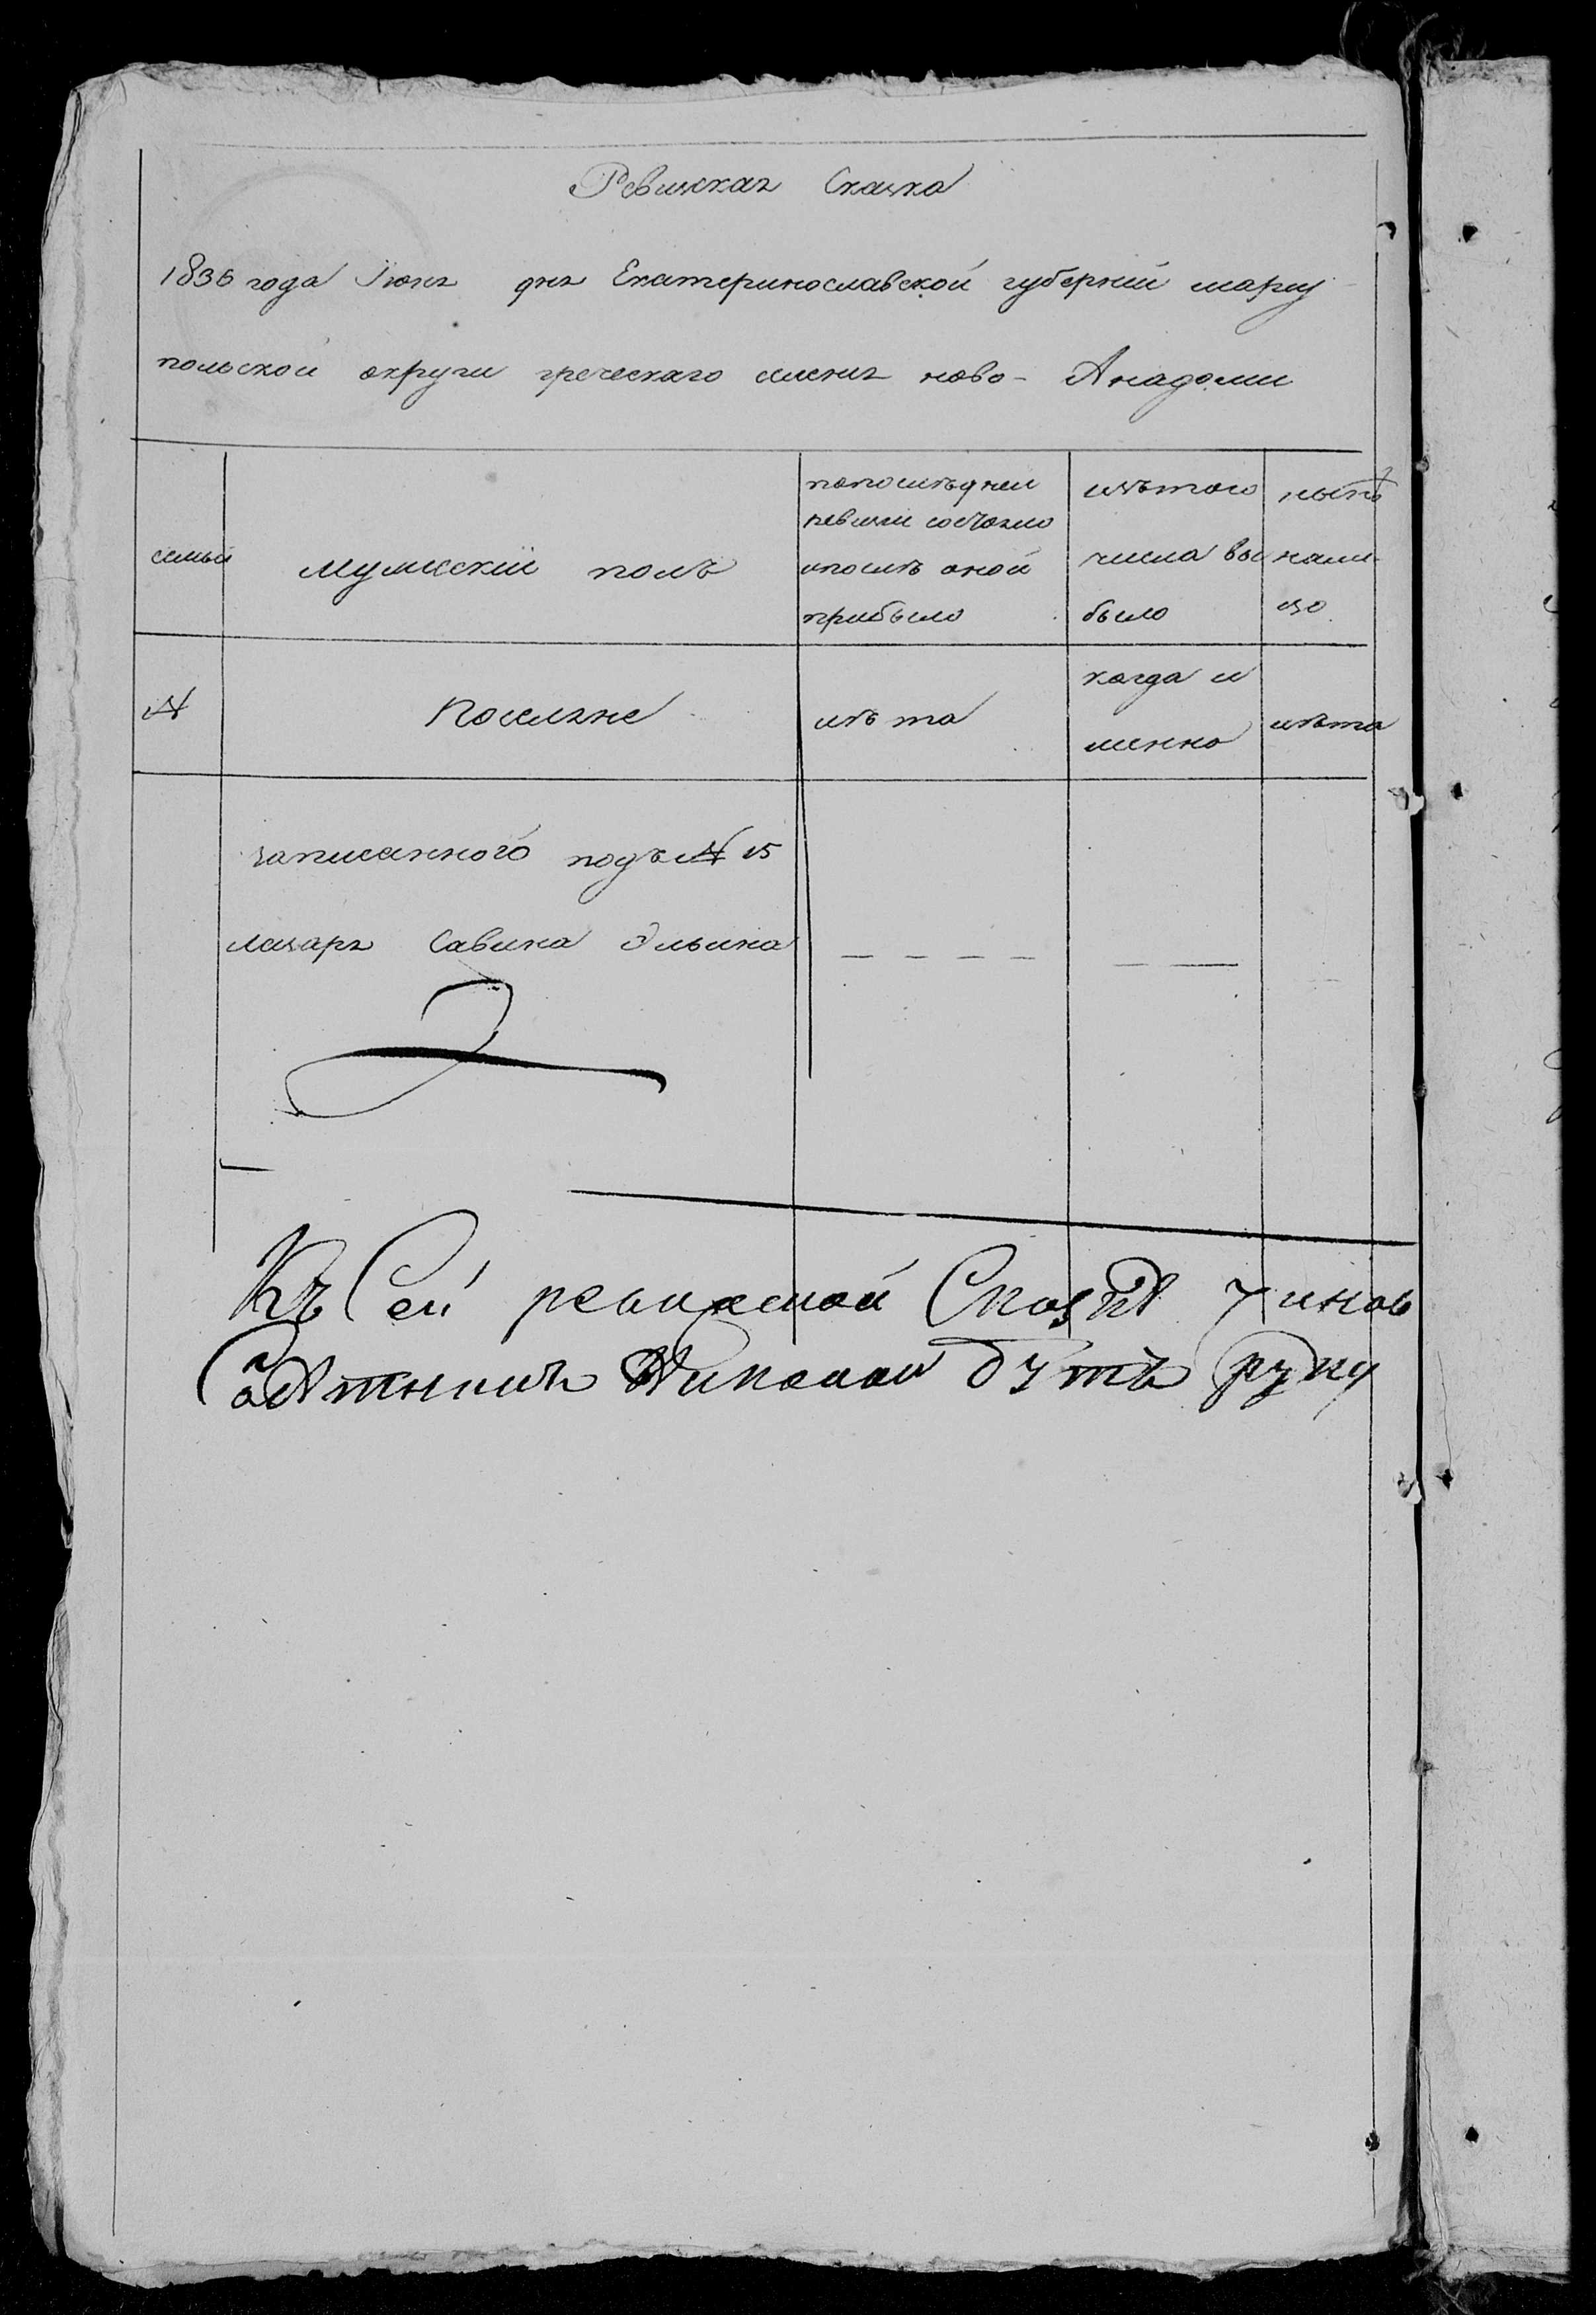 Ревизская Сказка
1836 года Июня дня Екатеринославской губернии мариу
польской округи греческаго селения ново- Анадоли
семьи
Мужеский полъ
попоследней
ревизии состояло
ипослѣ оной
прибыло
изътого
числа вы
было
нынѣ
нали-
цо
№
Поселяне
лѣта
когда и
менно
лѣта
записанного подъ № 15
лазаря Савина Эльина
Къ Сей ревизской Сказкѣ
Николай руку